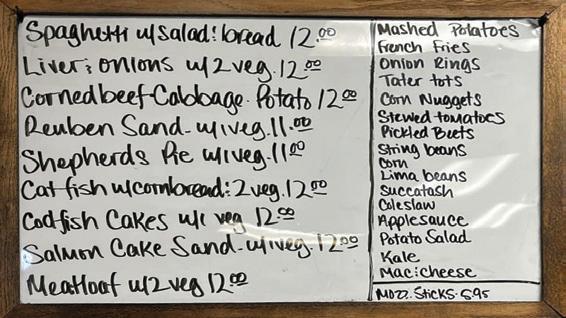 Spaghetti w/salad: bread 12.00
Liver: onions w/2 veg. 12.00
Cornedbeef-Cabbage. Potato 12.00
Reuben Sand- w/1 veg. 11.00
Shepherds Pie w/1 veg. 11.00
Catfish w/cornbread: 2 veg. 12.00
Codfish Cakes w/1 veg 12.00
Salmon Cake Sand- w/1 veg. 12.00
Meatloaf w/2 veg 12.00
Mashed Potatoes
French Fries
Onion Rings
Tater tots
Corn Nuggets
Stewed tomatoes
Pickled Beets
String beans
Corn
Lima beans
Succatash
Coleslaw
Applesauce
Potato Salad
Kale
Mac:cheese
Mozz. Sticks. 5.95